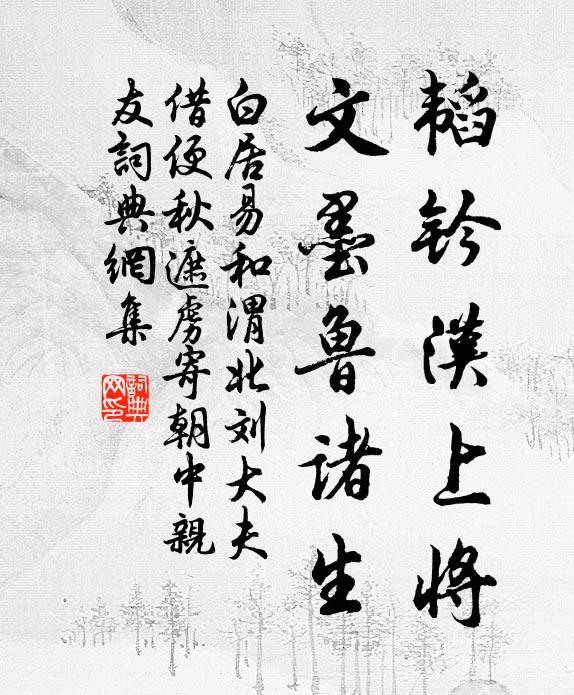 韬鈐漢上将
文墨魯诸生
白居易和渭北刘大夫
借便秋遮虏寄朝中親
友詞典網集
詞典网印